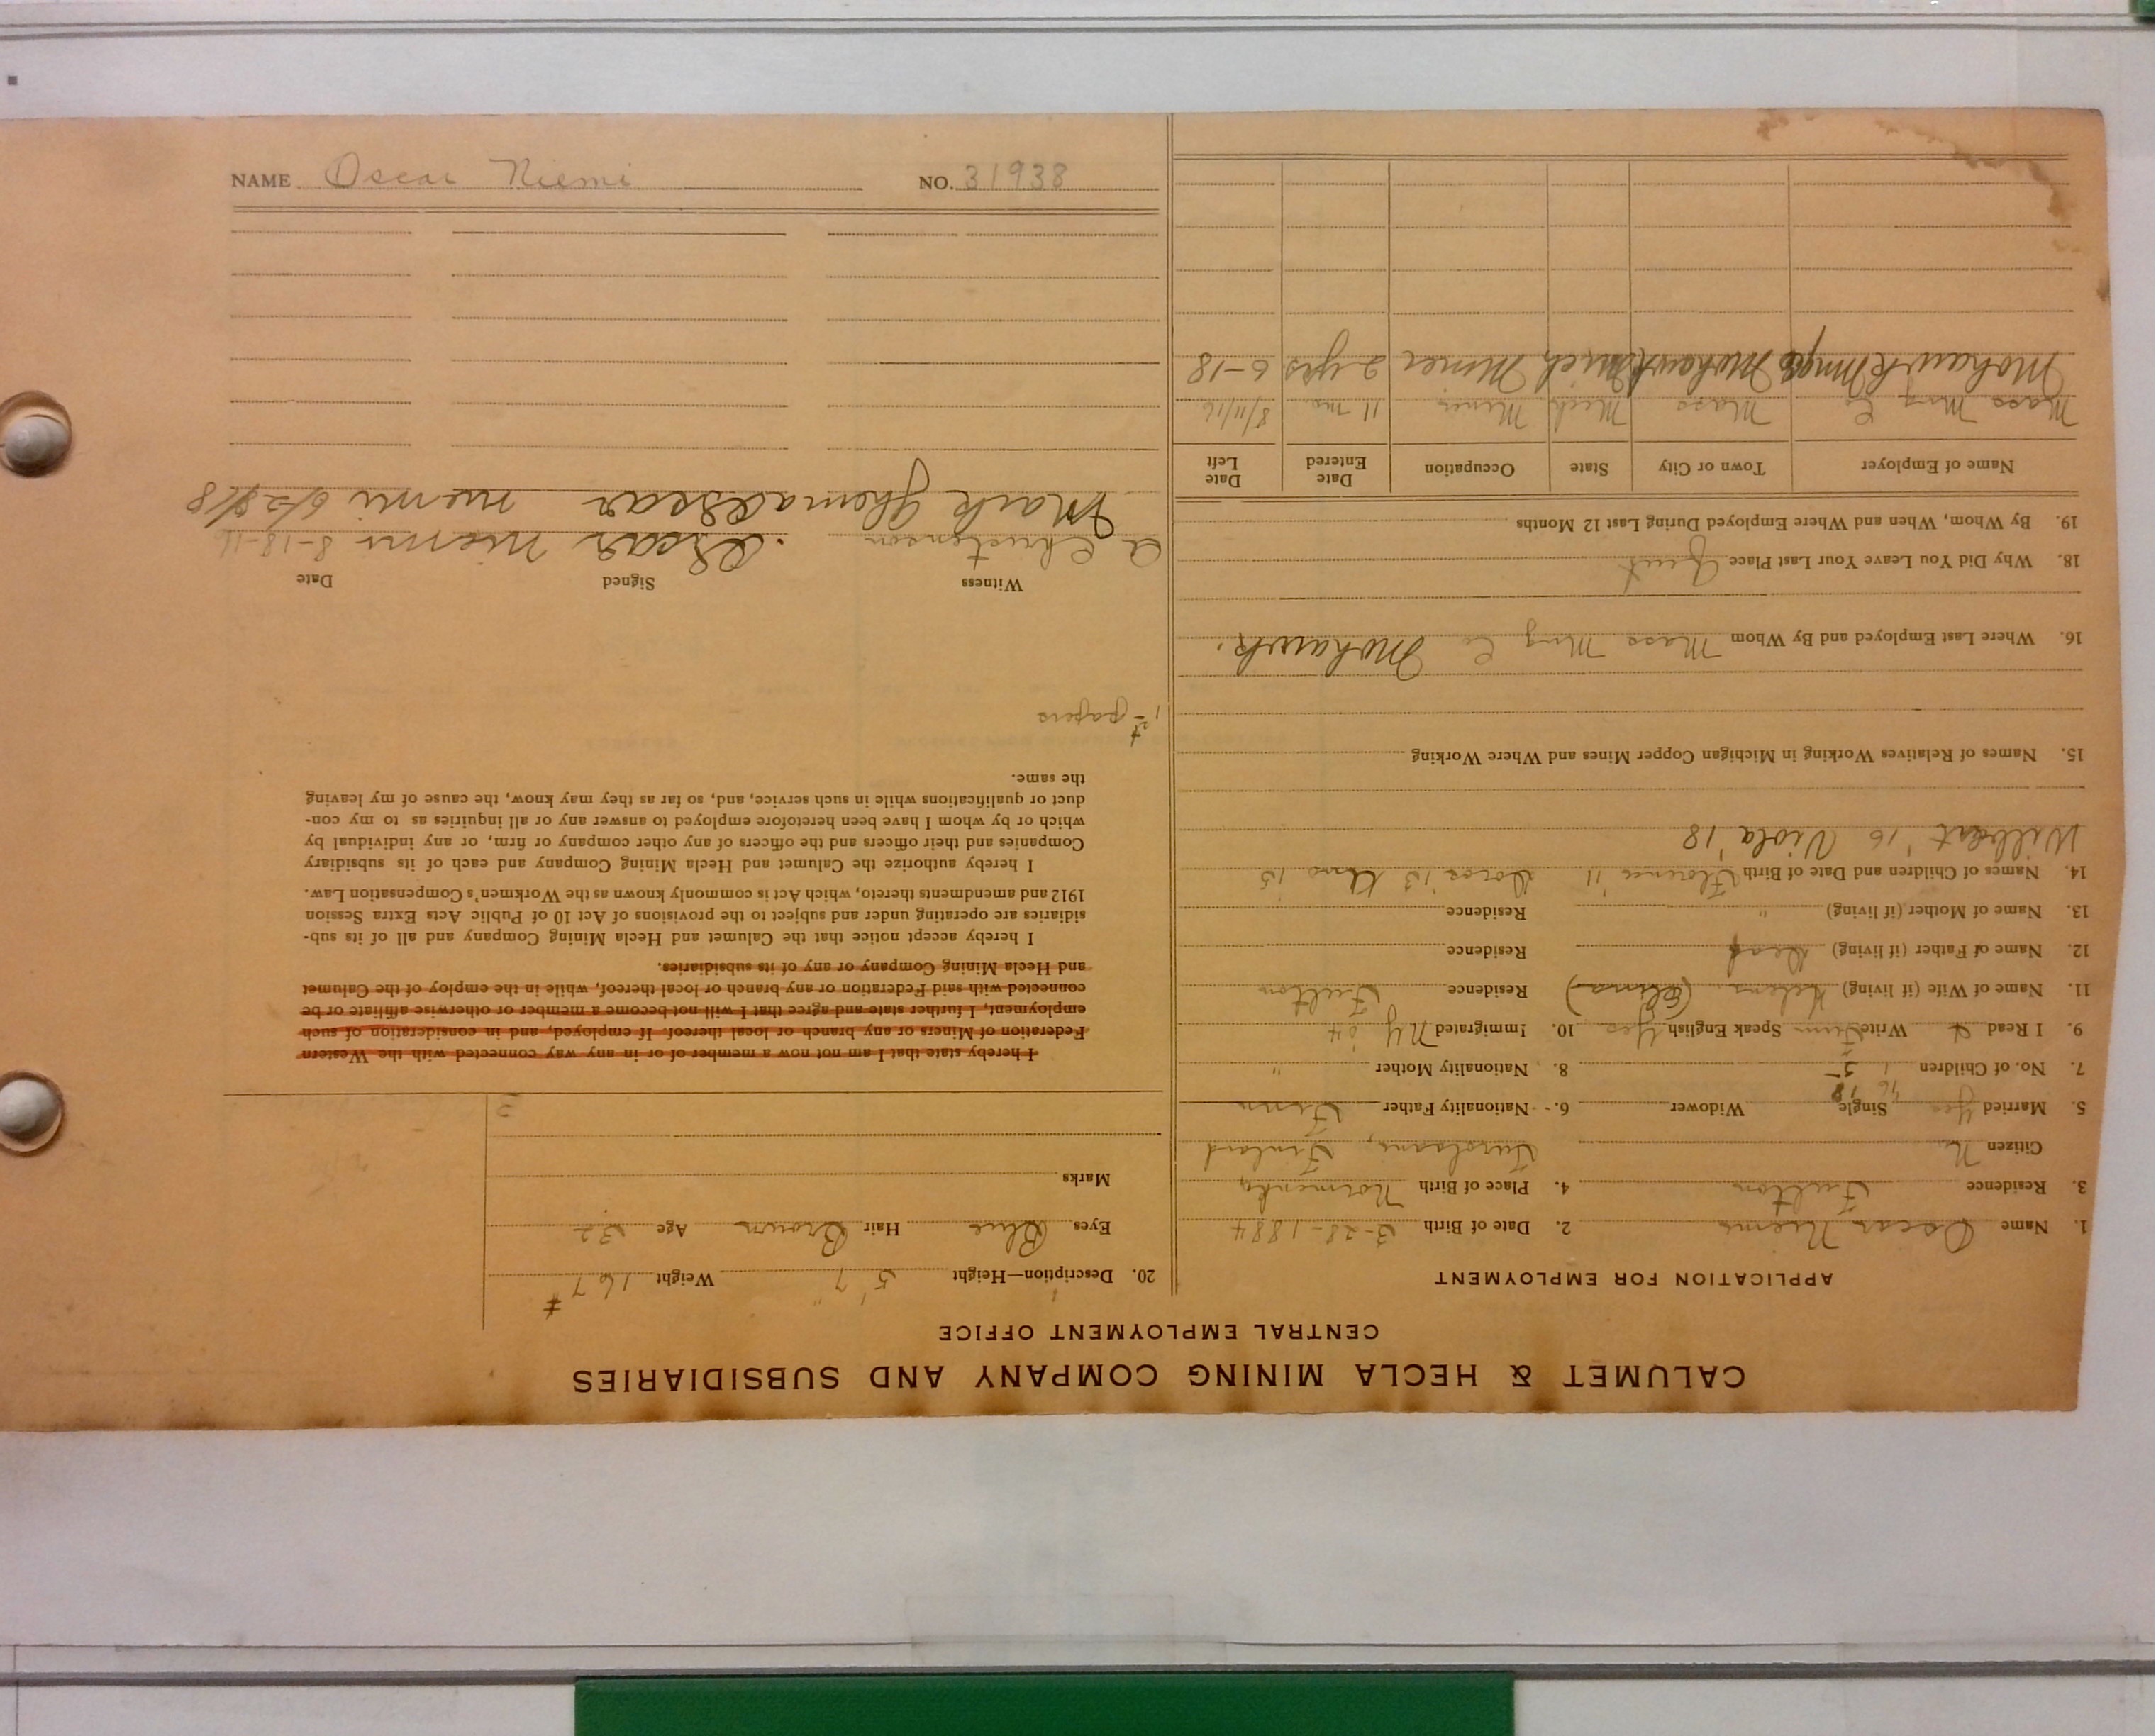 CALUMET & HECLA MINING COMPANY AND SUBSIDIARIES
CENTRAL EMPLOYMENT OFFICE
APPLICATION FOR EMPLOYMENT
1. Name Oscar Niemi 2. Date of Birth 3-28-1884
3. Residence Fulton 4. Place of Birth
Citizen No Finland
5. Married Yes Single '16 '18 Widower 6. Nationality Father Finn
7. No. of Children 1 5 8. Nationality Mother "
9. I Read & Write Finn Speak English Yes 10. Immigrated NY 04
11. Name of Wife (if living) Helena (Elima) Residence Fulton
12. Name of Father (if living) Dead Residence
13. Name of Mother (if living) " Residence
14. Names of Children and Date of Birth Florence '11 '13 15
Wilbert '16 Viola '18
15. Names of Relatives Working in Michigan Copper Mines and Where Working
16. Where Last Employed and By Whom Mass Mng Co Mohawk.
18. Why Did You Leave Your Last Place Quit
19. By Whom, When and Where Employed During Last 12 Months
Name of Employer Town or City State Occupation Date Entered Date Left
Mass Mng Co Mass Mich Miner 11 mo 8/11/16
Mohawk Mng Co Mohawk Mich Miner 2 yrs 6-18
20. Description—Height 5' 7" Weight 167 #
Eyes Blue Hair Brown Age 32
Marks
I hereby state that I am not now a member of or in any way connected with the Western
Federation of Miners or any branch or local thereof. If employed, and in consideration of such
employment, I further state and agree that I will not become a member or otherwise affiliate or be
connected with said Federation or any branch or local thereof, while in the employ of the Calumet
and Hecla Mining Company or any of its subsidiaries.
I hereby accept notice that the Calumet and Hecla Mining Company and all of its sub-
sidiaries are operating under and subject to the provisions of Act 10 of Public Acts Extra Session
1912 and amendments thereto, which Act is commonly known as the Workmen's Compensation Law.
I hereby authorize the Calumet and Hecla Mining Company and each of its subsidiary
Companies and their officers and the officers of any other company or firm, or any individual by
which or by whom I have been heretofore employed to answer any or all inquiries as to my con-
duct or qualifications while in such service, and, so far as they may know, the cause of my leaving
the same.
1st papers
Witness Signed Date
A Christenson Oscar Niemi 8-18-16
Mark Thomas Oscar Niemi 6/28/18
NAME Oscar Niemi NO. 31938